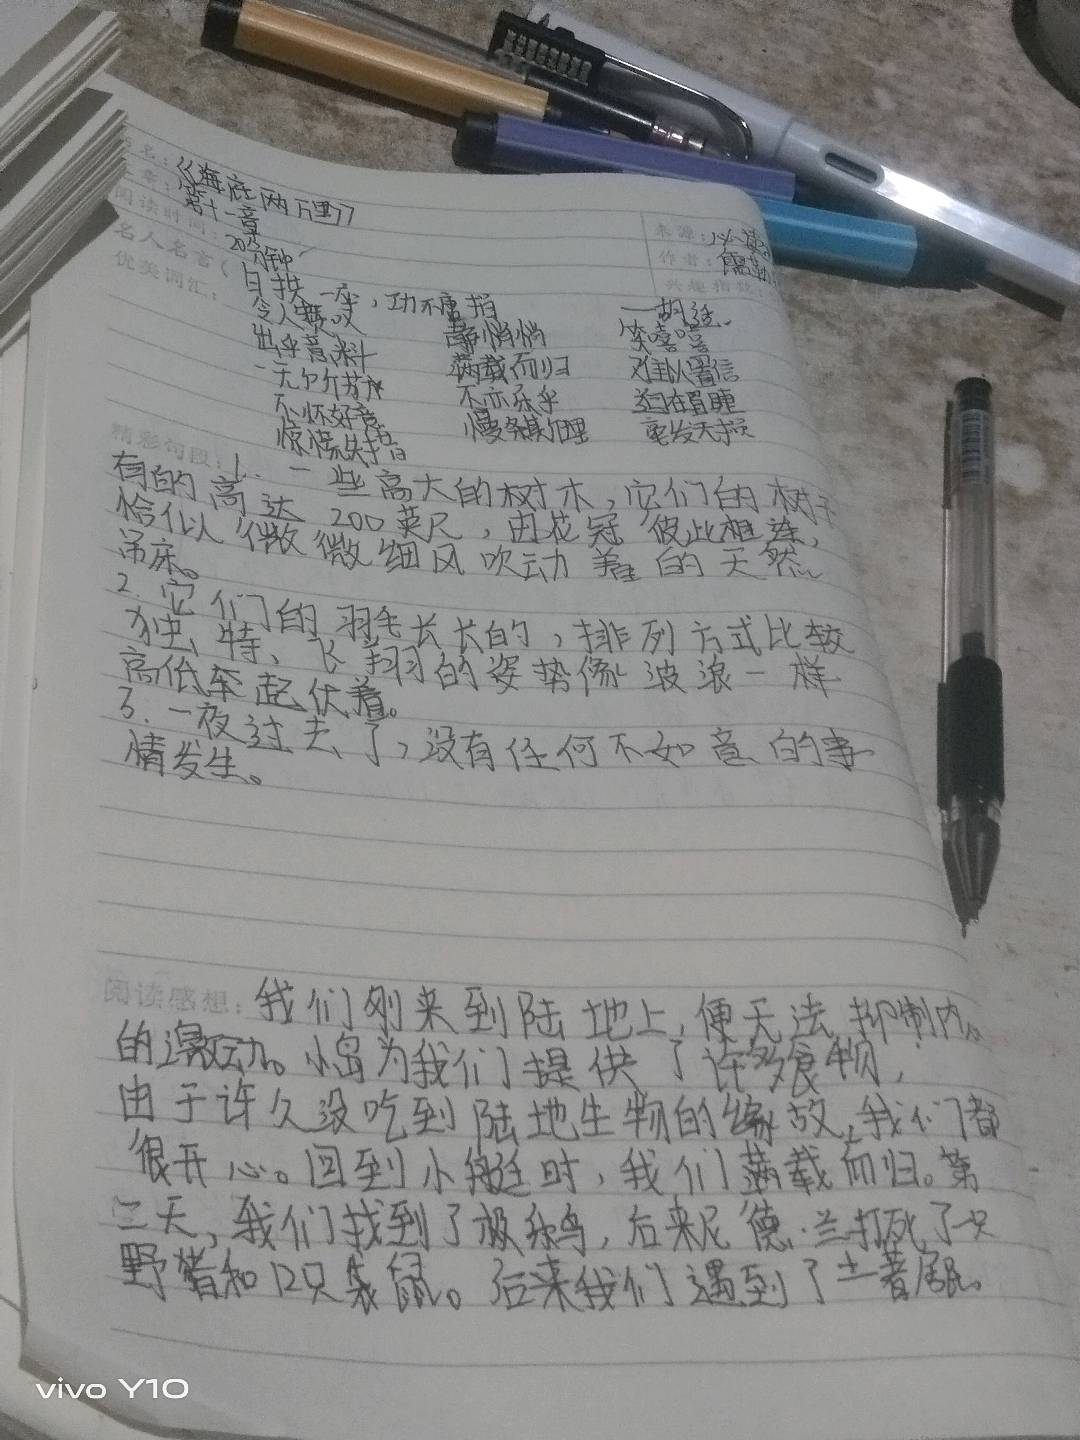 《海底两万里》
第十一章
阅读时间：20分钟
来源：必读
作者：儒勒
兴趣指数
名人名言（日拱一卒，功不唐捐
优美词汇：令人赞叹 静悄悄 一胡逛
出乎意料 满载而归 笑嘻嘻
不亦乐乎 难以置信
不怀好意 慢条斯理 迫在眉睫
惊慌失措 毫发无损
精彩句段：1.一些高大的树木，它们的树干
有的高达200英尺，由花冠彼此相连，
恰似微微细风吹动着的天然
吊床。
2.它们的羽毛长长的，排列方式比较
独特、飞翔的姿势像波浪一样
高低起伏着。
3.一夜过去了，没有任何不如意的事
情发生。
阅读感想：我们刚来到陆地上，便无法抑制内心
的激动。小岛为我们提供了许多食物，
由于许久没吃到陆地生物的缘故，我们都
很开心。回到小艇时，我们满载而归。第
二天，我们找到了极乐鸟，后来尼德·兰打死了一只
野猪和12只袋鼠。后来我们遇到了土著居民。
vivo Y10